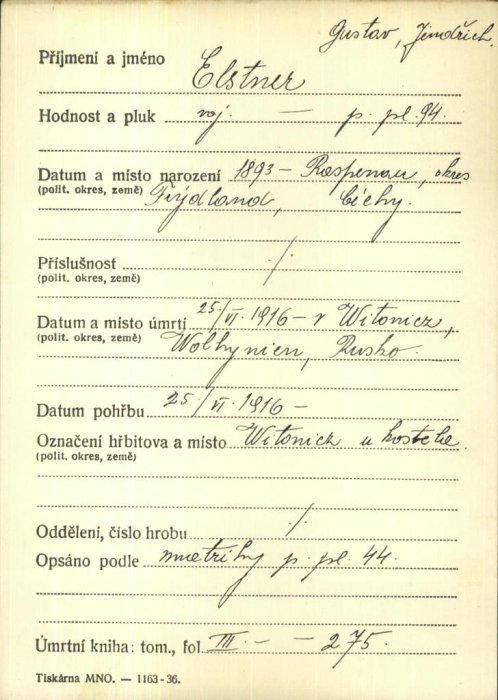 Gustav, Jindřich.
Příjmení a jméno Elstner
Hodnost a pluk voj. — p. pl. 94.
Datum a místo narození 1893 – Raspenau, okres
(polit. okres, země) Frýdland, Čechy.
Příslušnost ./.
(polit. okres, země)
Datum a místo úmrtí 25/VI. 1916 – v Witonicz,
(polit. okres, země) Wolhynien, Rusko.
Datum pohřbu 25./VI. 1916 –
Označení hřbitova a místo Witonicz u kostela.
(polit. okres, země)
Oddělení, číslo hrobu ./.
Opsáno podle matriky p. pl. 44.
Úmrtní kniha: tom., fol. III. — — 275.
Tiskárna MNO. — 1163-36.